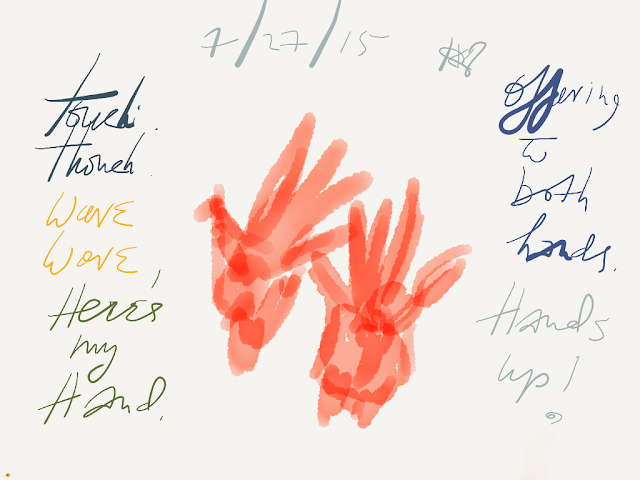 7/27/15
Touch.
Thouch.
Wave
Wave,
Here's
my
Hand.
Offering
to
both
hands.
Hands
up!